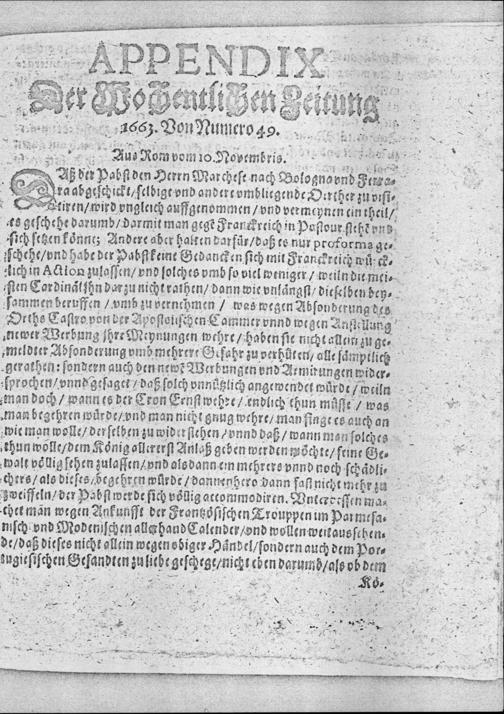 APPENDIX
Der Wochentlichen Zeitung
1663. Von Numero 49.
Aus Rom vom 10. Novembris.
Daß der Pabst den Herrn Marchese nach Bologna vnd Ferra-
ra abgeschickt / selbige vnd andere vmbliegende Oerther zu visi-
tiren / wird vngleich auffgenommen / vnd vermeynen ein theil /
es geschehe darumb / darmit man gegẽ Franckreich in Postour steht vnd
sich setzen könne; Andere aber halten darfür / daß es nur proforma ge-
schehe / vnd habe der Pabst keine Gedancken sich mit Franckreich würck-
lich in Action zulassen / vnd solches vmb so viel weniger / weiln die mei-
sten Cardinäl ihn darzu nicht rathen / dann wie vnlängst / dieselben bey-
sammen beruffen / vmb zu vernehmen / was wegen Absonderung des
Orths Castro von der Apostolischen Cammer vnnd wegen Anstellung
newer Werbung ihre Meynungen wehre / haben sie nicht allein zu ge-
meldter Absonderung vmb mehrere Gefahr zu verhüten / alle sämptlich
gerathen: sondern auch den newẽ Werbungen vnd Armirungen wider-
sprochen / vnnd gesaget / daß solch vnnützlich angewendet würde / weiln
man doch / wann es der Cron Ernst wehre / endlich thun müsse / was
man begehren würde / vnd man nicht gnug wehre / man finge es auch an
wie man wolle / derselben zu widerstehen / vnnd daß / wann man solches
thun wölle / dem König allererst Anlaß geben werden möchte / seine Ge-
walt völlig sehen zulassen / vnd alsdann ein mehrers vnnd noch schädli-
chers / als dieses / begehren würde / dannenhero dann fast nicht mehr zu
zweiffeln / der Pabst werde sich völlig accommodiren. Vnterdessen ma-
chet man wegen Ankunfft der Frantzösischen Trouppen im Parmesa-
nisch vnd Modenischen allerhand Calender / vnd wollen weitaussehen-
de / daß dieses nicht allein wegen obiger Händel / sondern auch dem Por-
tugiesischen Gesandten zu liebe geschege / nicht eben darumb / als ob dem
Kö-